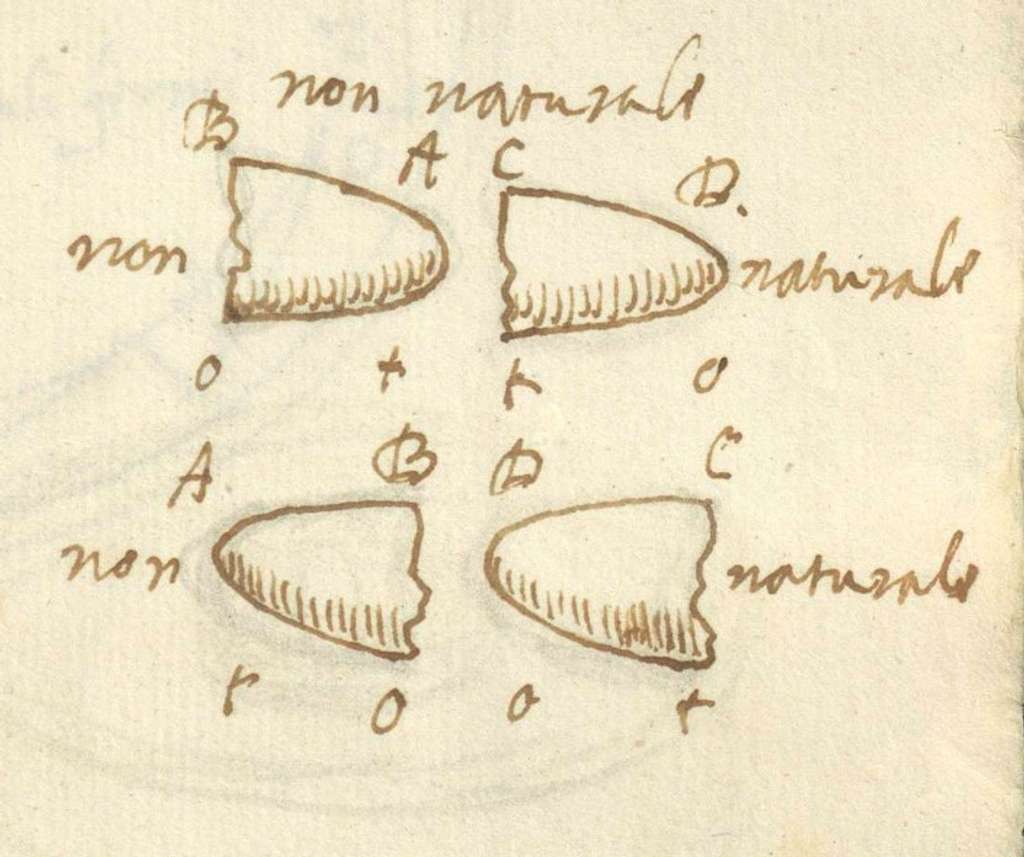 non naturale
B A C D.
non naturale
o + + o
A B D C
non naturale
+ o o +